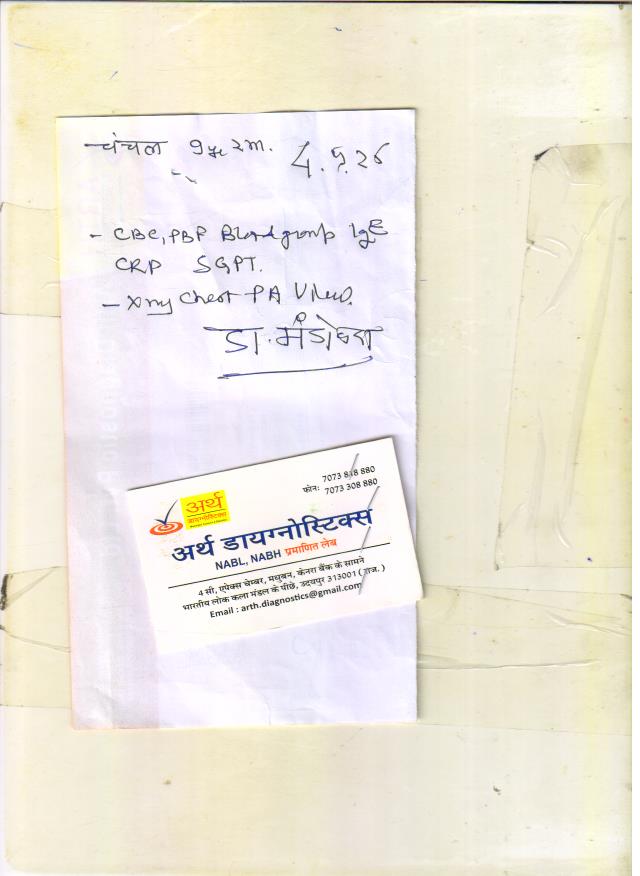 चंचल 9 yr 2m. 4.5.26
- CBC, PBP Blood group IgE
CRP SGPT.
- Xray Chest PA View.
डा. मंडोवरा
फोन: 7073 818 880
7073 308 880
अर्थ
डायग्नोस्टिक्स
अर्थ डायग्नोस्टिक्स
NABL, NABH प्रमाणित लेब
4 सी, एपेक्स चेम्बर, मधुबन, केनरा बैंक के सामने
भारतीय लोक कला मंडल के पीछे, उदयपुर 313001 (राज.)
Email : arth.diagnostics@gmail.com